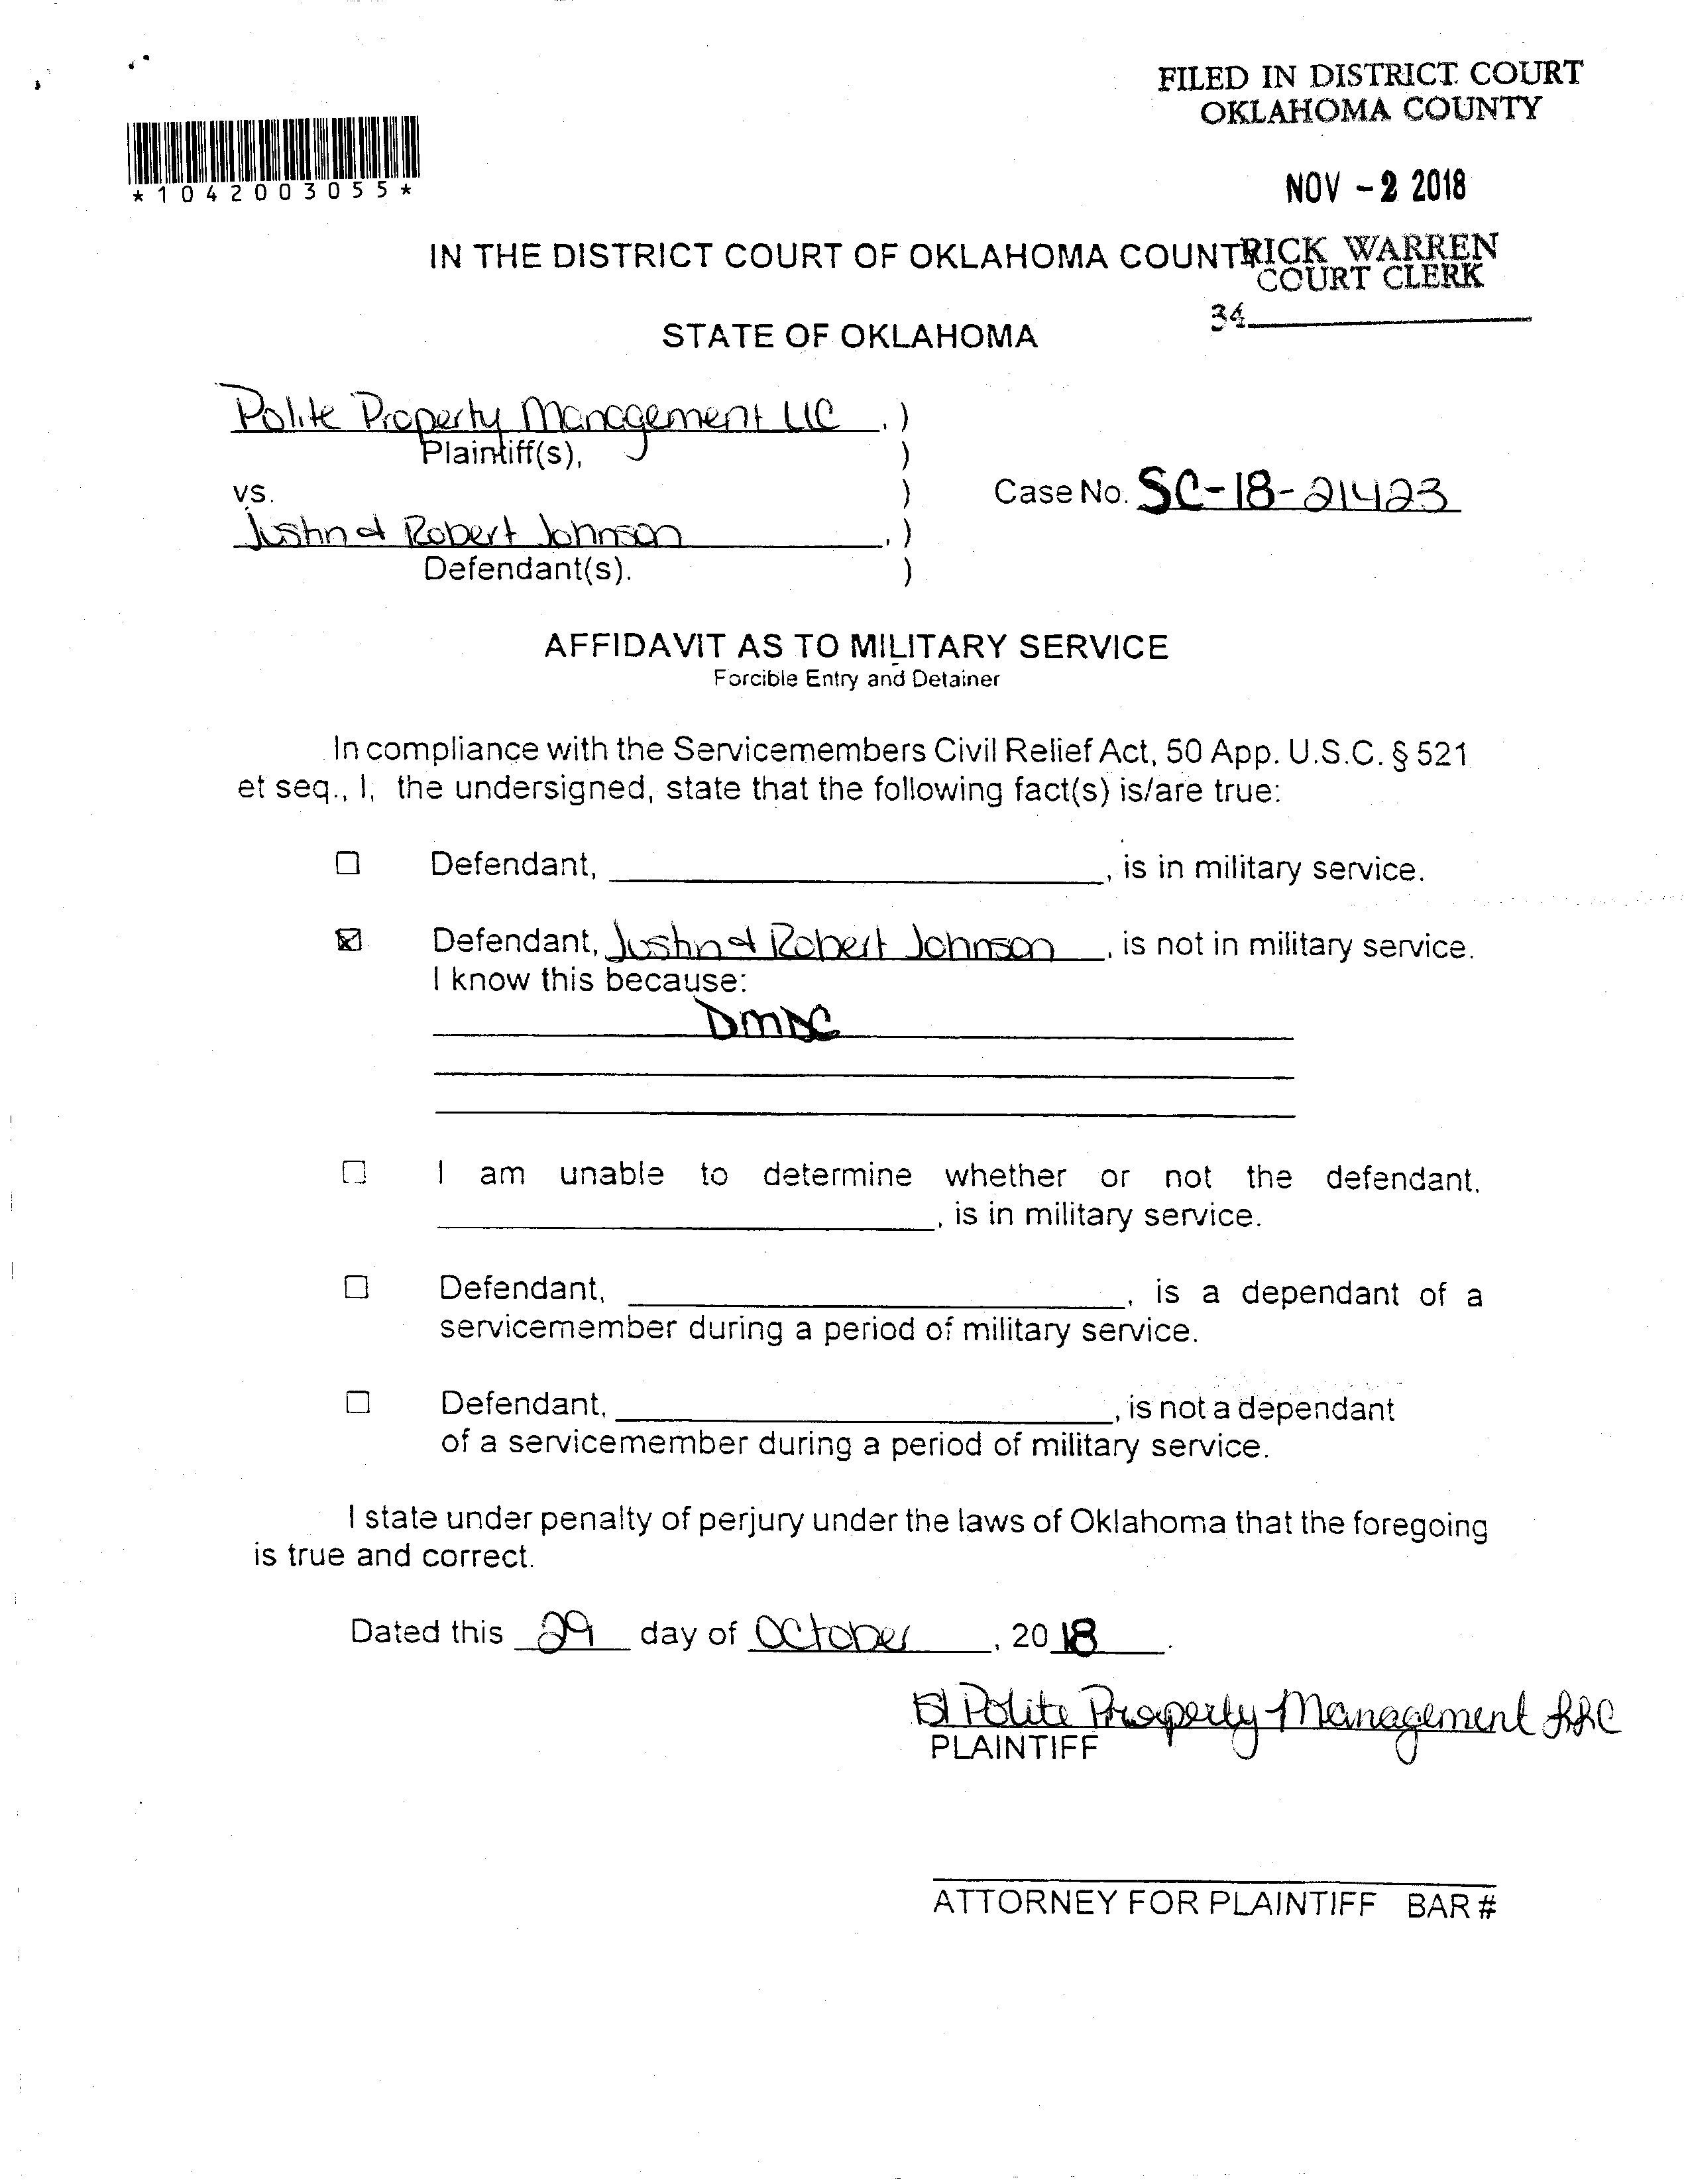 FILED IN DISTRICT COURT
OKLAHOMA COUNTY
*1042003055*
NOV -2 2018
IN THE DISTRICT COURT OF OKLAHOMA COUNT
RICK WARREN
COURT CLERK
34
STATE OF OKLAHOMA
Polite Property Management LLC , )
Plaintiff(s), )
vs. ) Case No. SC-18-21423
Justin & Robert Johnson , )
Defendant(s). )
AFFIDAVIT AS TO MILITARY SERVICE
Forcible Entry and Detainer
In compliance with the Servicemembers Civil Relief Act, 50 App. U.S.C. § 521
et seq., I, the undersigned, state that the following fact(s) is/are true:
☐ Defendant, , is in military service.
☒ Defendant, Justin & Robert Johnson , is not in military service.
I know this because:
DMDC
☐ I am unable to determine whether or not the defendant,
, is in military service.
☐ Defendant, , is a dependant of a
servicemember during a period of military service.
☐ Defendant, , is not a dependant
of a servicemember during a period of military service.
I state under penalty of perjury under the laws of Oklahoma that the foregoing
is true and correct.
Dated this 29 day of October , 20 18 .
/s/ Polite Property Management LLC
PLAINTIFF
ATTORNEY FOR PLAINTIFF BAR #